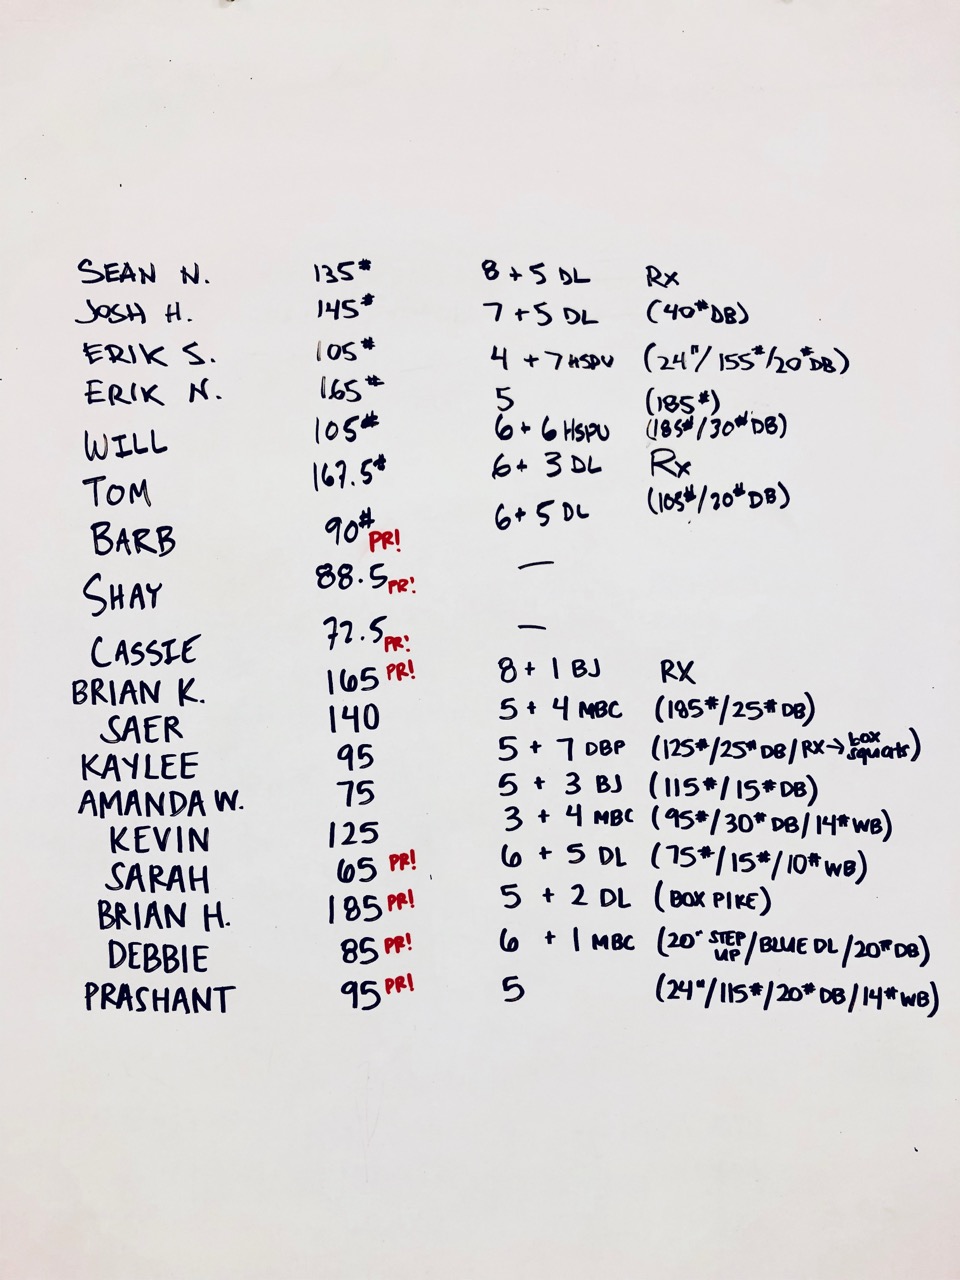 SEAN N. 135# 8 + 5 DL Rx
JOSH H. 145# 7 + 5 DL (40# DB)
ERIK S. 105# 4 + 7 HSPU (24"/155#/20# DB)
ERIK N. 165# 5 (185#)
WILL 105# 6 + 6 HSPU (185#/30# DB)
TOM 167.5# 6 + 3 DL Rx
BARB 90# PR! 6 + 5 DL (105#/20# DB)
SHAY 88.5 PR! —
CASSIE 72.5 PR! —
BRIAN K. 165 PR! 8 + 1 BJ RX
SAER 140 5 + 4 MBC (185#/25# DB)
KAYLEE 95 5 + 7 DBP (125#/25# DB/RX→ box squats)
AMANDA W. 75 5 + 3 BJ (115#/15# DB)
KEVIN 125 3 + 4 MBC (95#/30# DB/14# WB)
SARAH 65 PR! 6 + 5 DL (75#/15#/10# WB)
BRIAN H. 185 PR! 5 + 2 DL (BOX PIKE)
DEBBIE 85 PR! 6 + 1 MBC (20" STEP UP/BLUE DL/20# DB)
PRASHANT 95 PR! 5 (24"/115#/20# DB/14# WB)